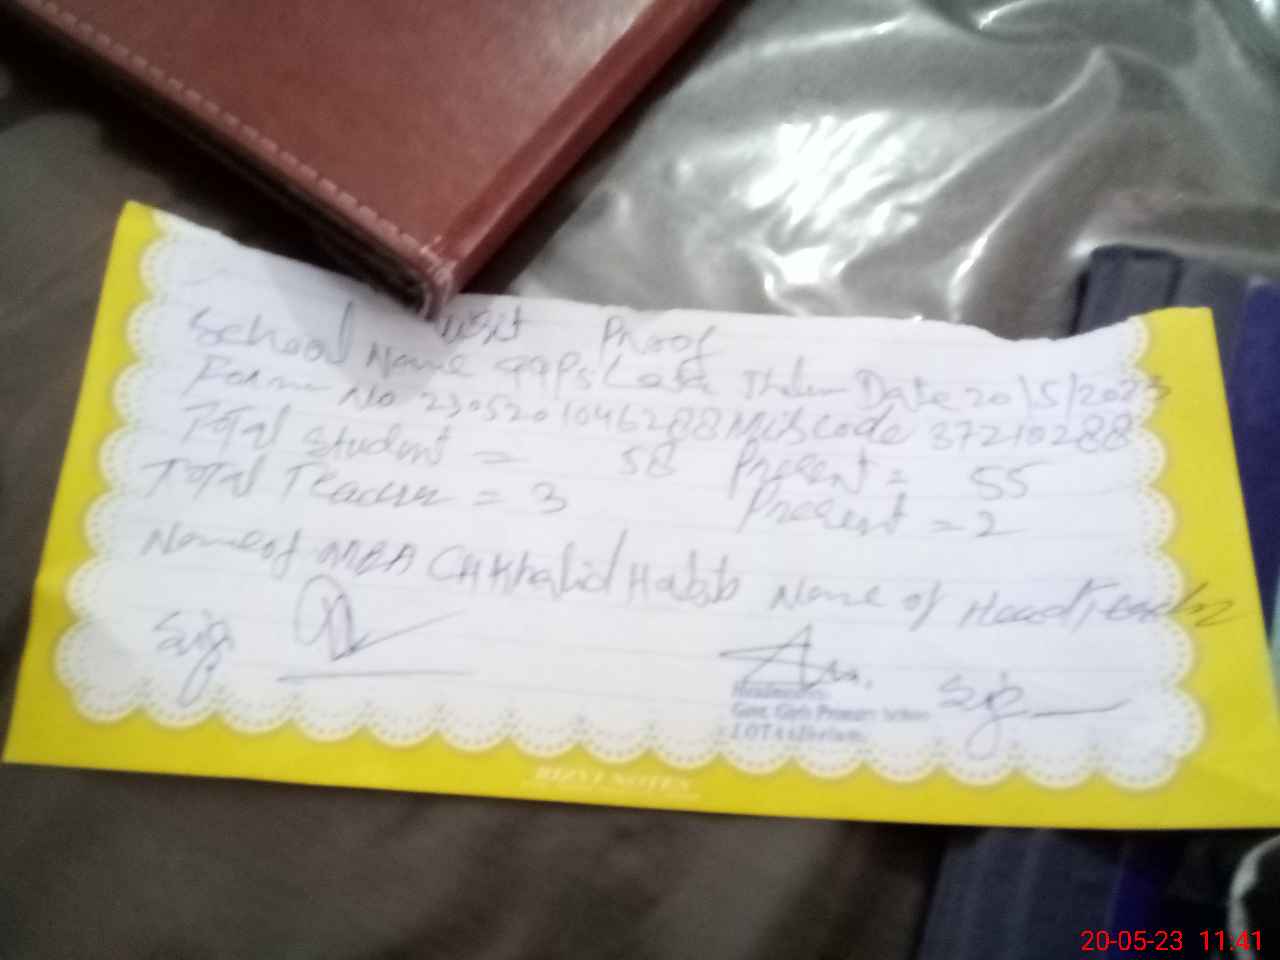 Visit Proof
School Name GGPS Lota Jhelum Date 20/5/2023
Form No 230520104628 8 Mis code 37210288
Total Student = 58 Present = 55
Total Teacher = 3 Present = 2
Name of MEA CH Khalid Habib Name of Head Teacher
Sig
Sig
Headmistress
Govt. Girls Primary School
LOTA (Jhelum)
RIZVI NOTES
20-05-23 11:41